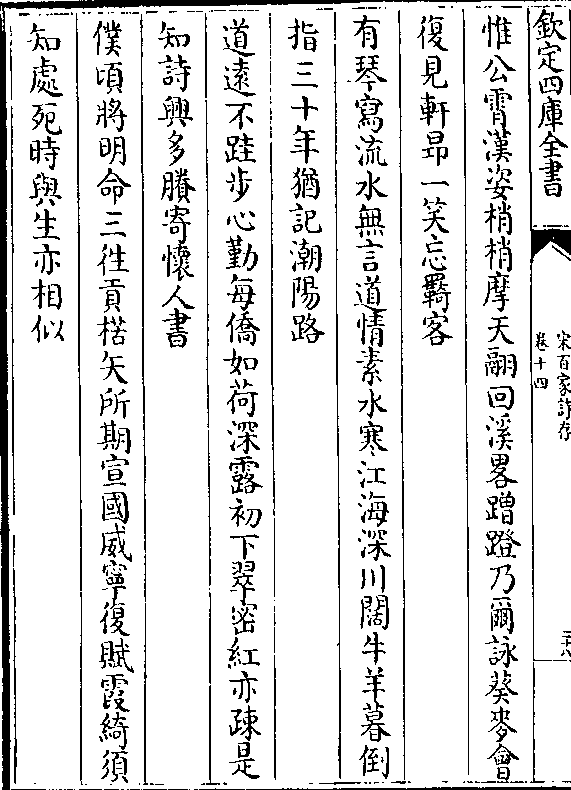 欽定四庫全書
宋百家詩存
卷十四
惟公霄漢姿梢梢摩天翮回溪畧蹭蹬乃爾詠葵麥會
復見軒昻一笑忘羇客
有琴寫流水無言道情素水寒江海深川闊牛羊暮倒
指三十年猶記潮陽路
道遠不跬步心勤每僑如荷深露初下翠密紅亦疎是
知詩興多賸寄懷人書
僕頃將明命三徃貢楛矢所期宣國威寧復賦霞綺須
知處死時與生亦相似